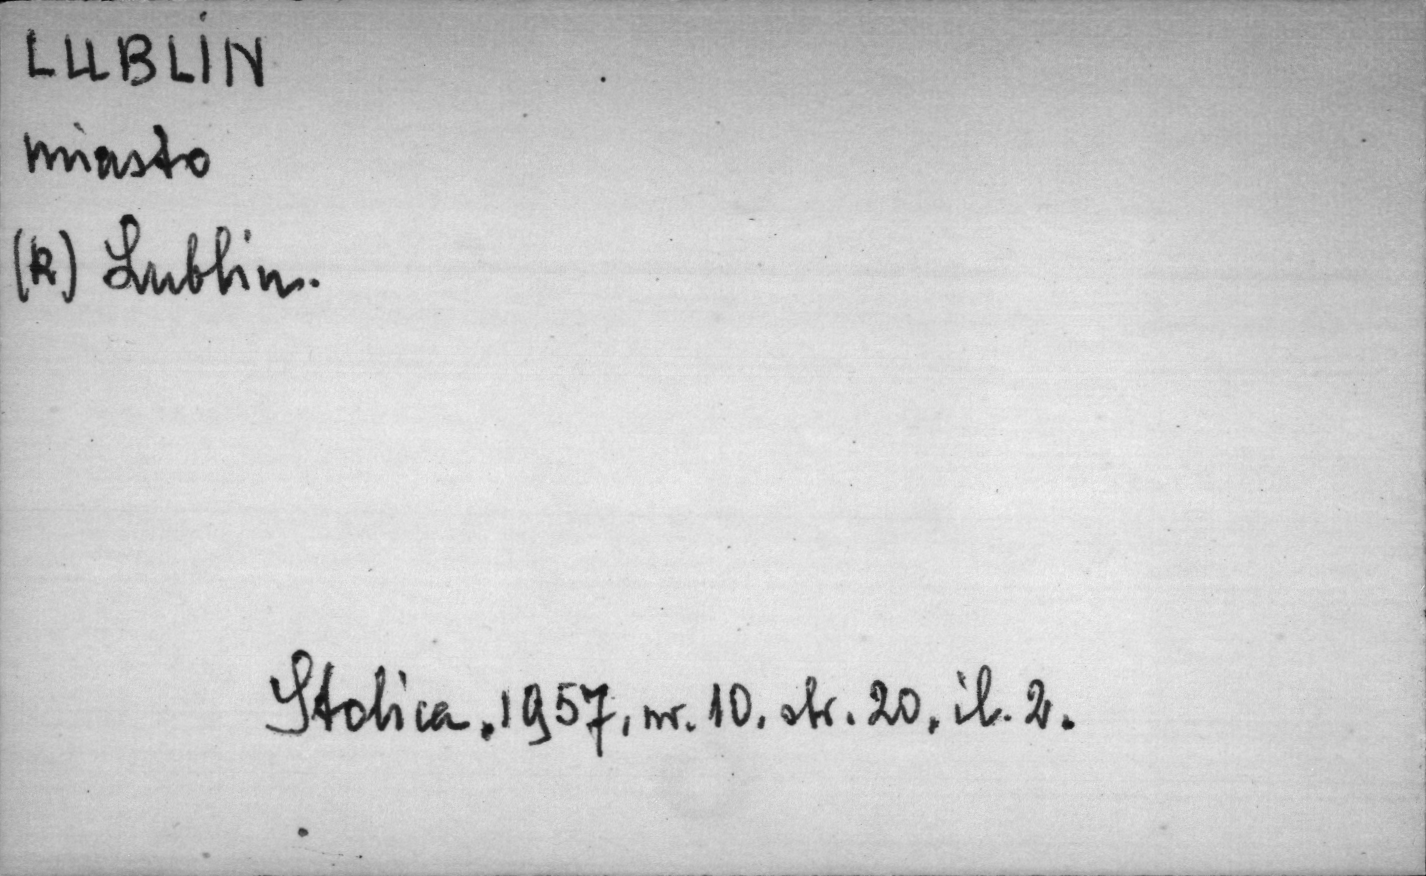 LUBLIN
miasto
(k) Lublin.
Stolica. 1957, nr. 10. str. 20, il. 2.